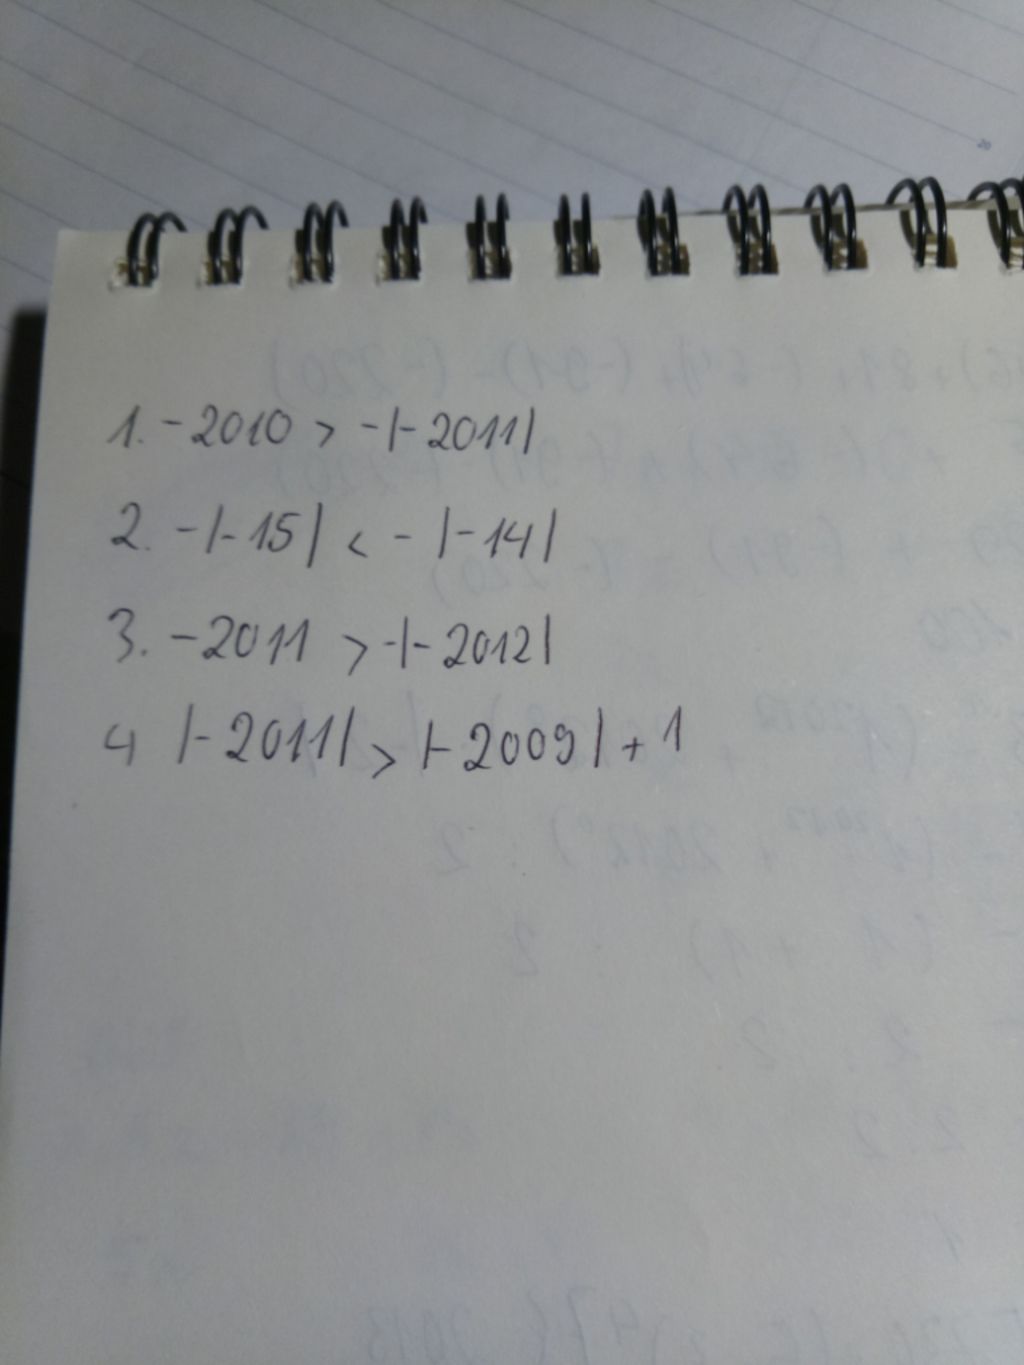 1. -2010 > -|-2011|
2. -|-15| < -|-14|
3. -2011 > -|-2012|
4 |-2011| > |-2009| + 1